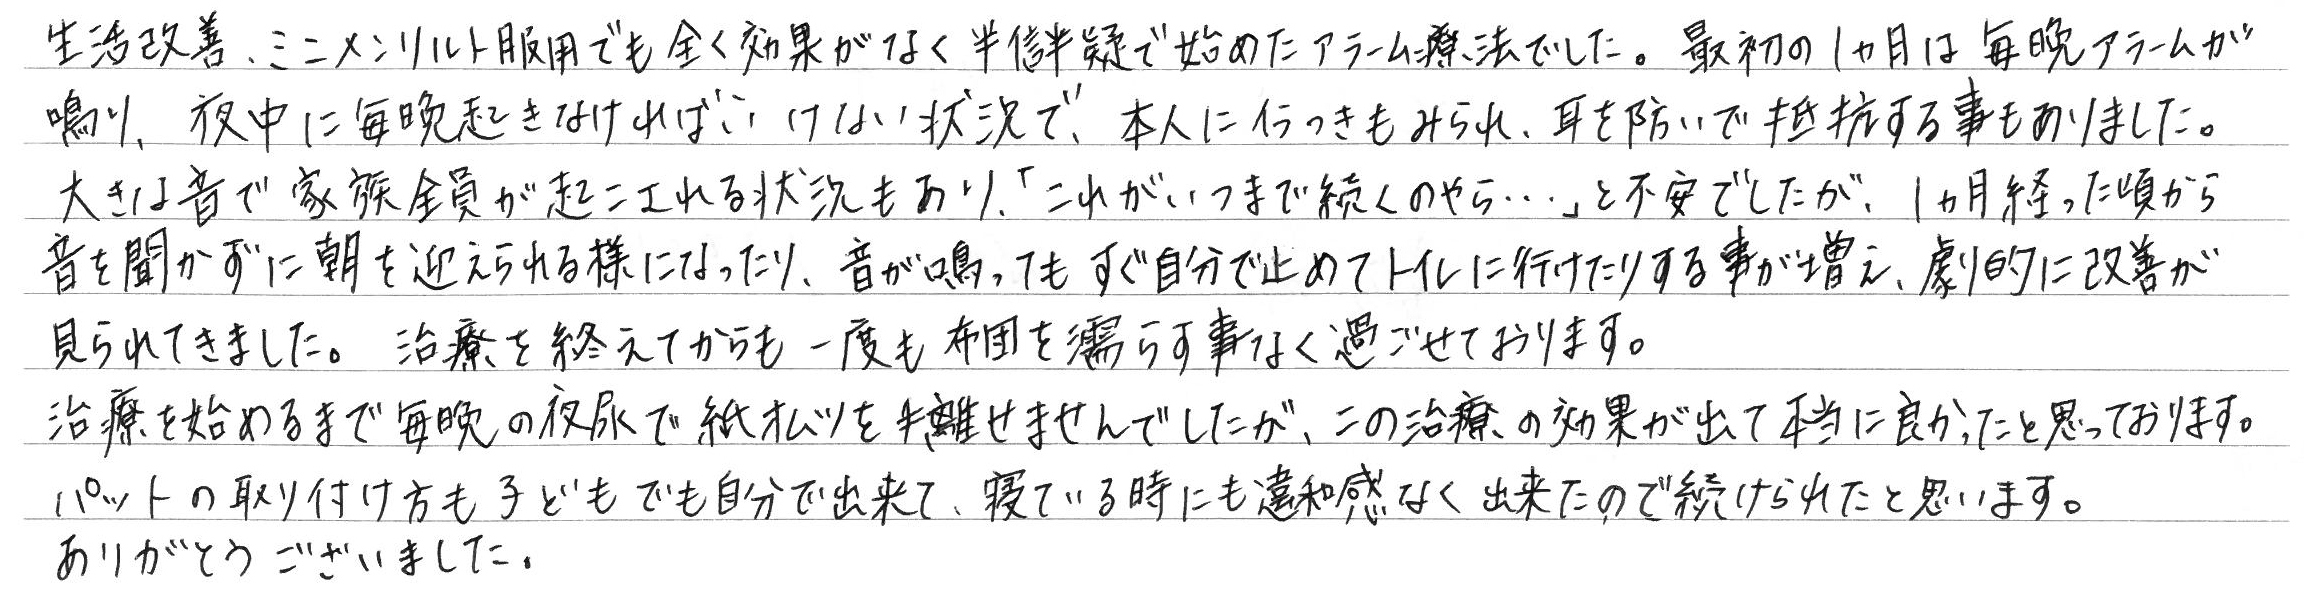 生活改善、ミニメンリルト服用でも全く効果がなく半信半疑で始めたアラーム療法でした。最初の1ヵ月は毎晩アラームが
鳴り、夜中に毎晩起きなければいけない状況で、本人に行つきもみられ、耳を防いで抵抗する事もありました。
大きな音で家族全員が起こされる状況もあり、「これがいつまで続くのやら…」と不安でしたが、1ヵ月経った頃から
音を聞かずに朝を迎えられる様になったり、音が鳴ってもすぐ自分で止めてトイレに行けたりする事が増え、劇的に改善が
見られてきました。 治療を終えてからも一度も布団を濡らす事なく過ごせております。
治療を始めるまで毎晩の夜尿で紙オムツを手離せませんでしたが、この治療の効果が出て本当に良かったと思っております。
パットの取り付け方も子どもでも自分で出来て、寝ている時にも違和感なく出来たので続けられたと思います。
ありがとうございました。